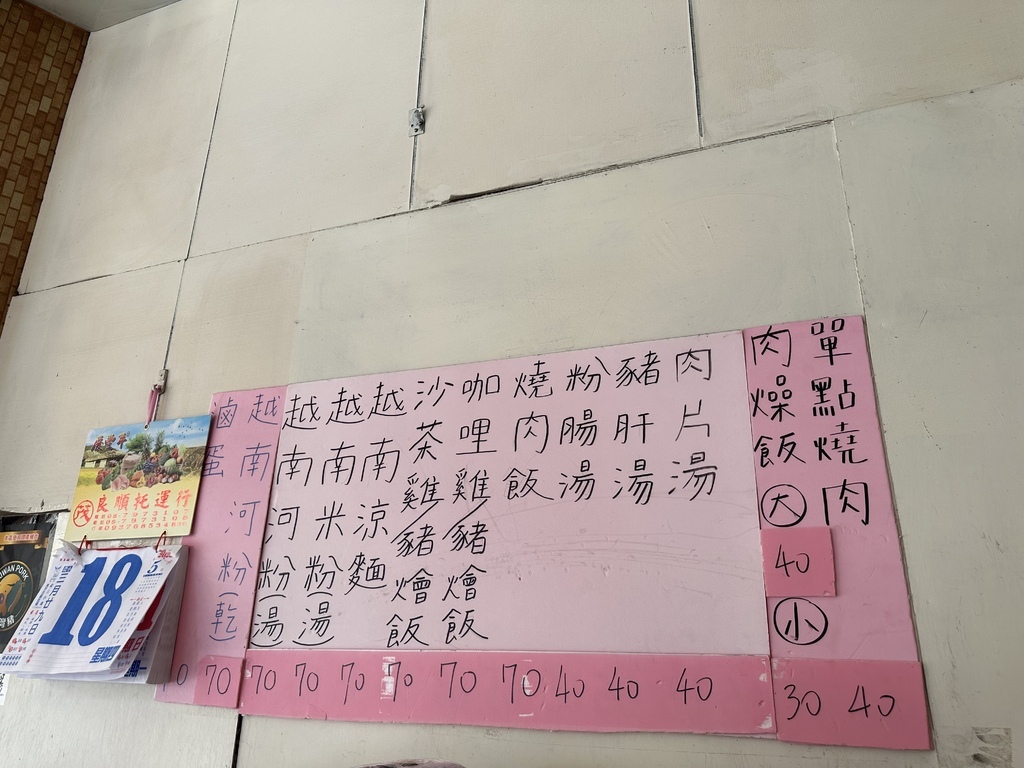 單點燒肉 40
肉燥飯 大 40 小 30
肉片湯 40
豬肝湯 40
粉腸湯 40
燒肉飯 70
咖哩雞/豬燴飯 70
沙茶雞/豬燴飯 70
越南涼麵 70
越南米粉(湯) 70
越南河粉(湯) 70
越南河粉(乾) 70
滷蛋
茂 良順托運行
18
5